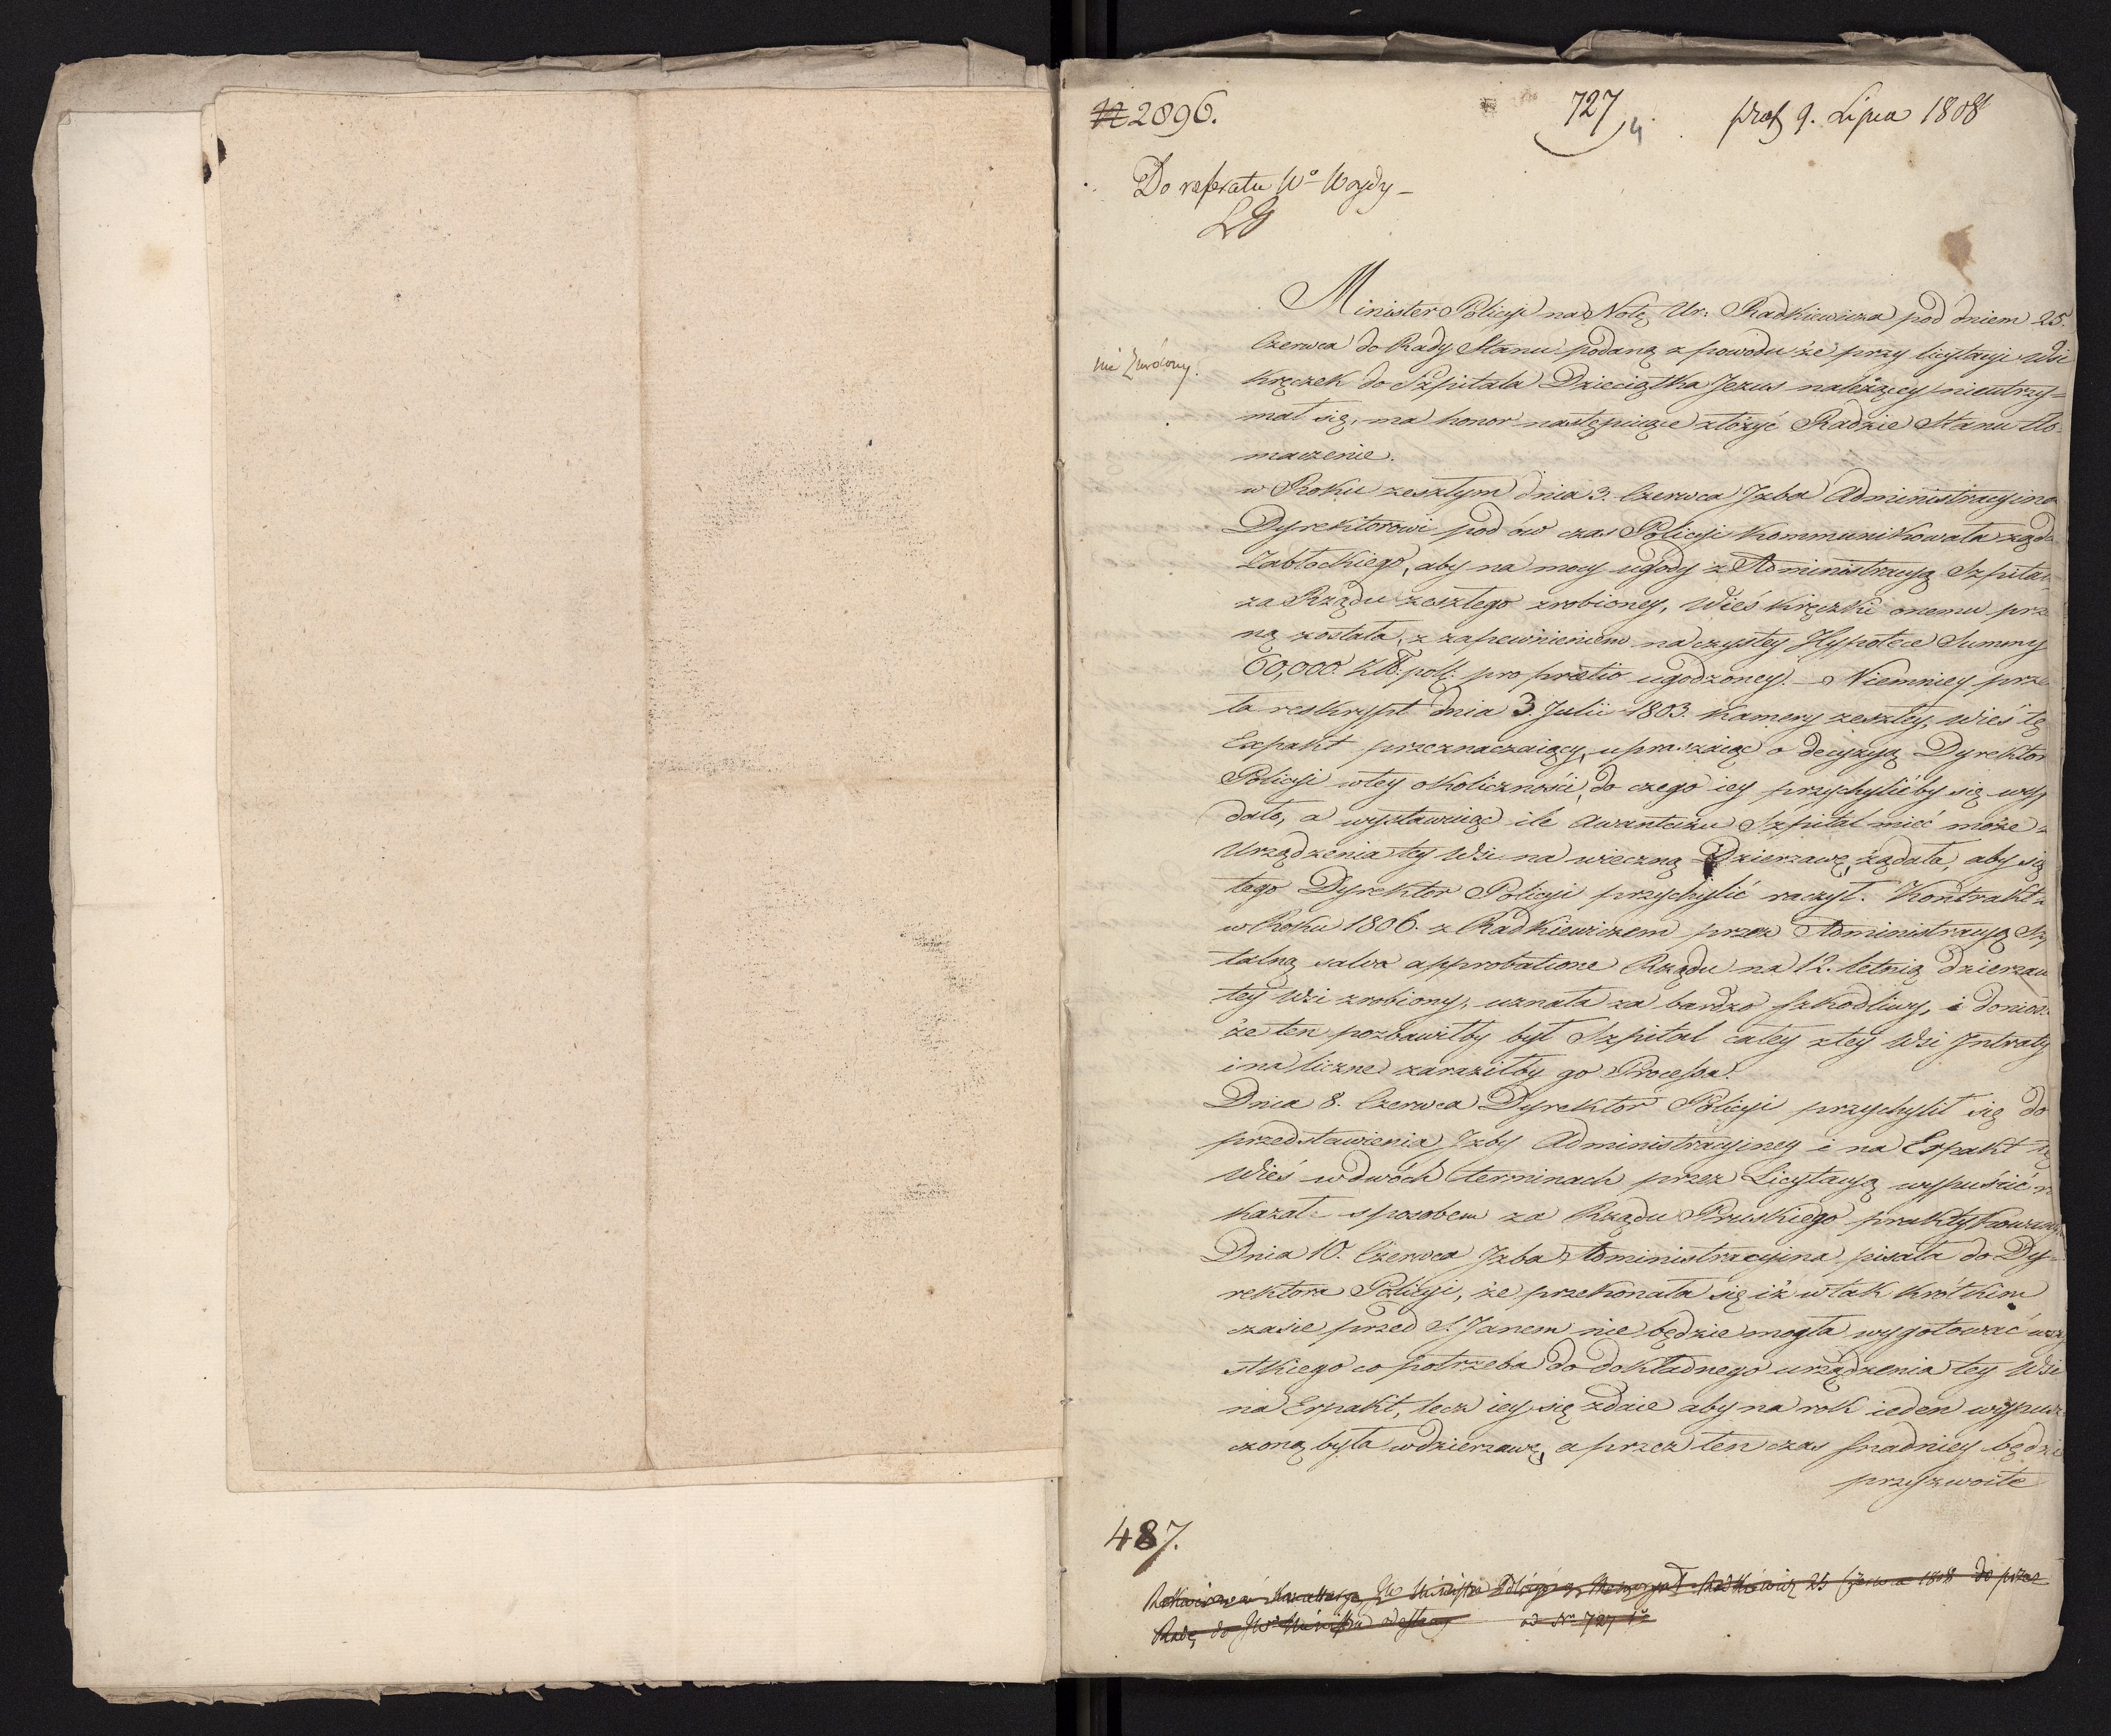 N 2896.
727
4.
praes 9. Lipca 1808
Do referatu Wo Woydy –
Minister Policyi na Notę Ur: Radkiewicza pod dniem 25.
Czerwca do Rady Stanu podaną z powodu że przy licytacyi Wsi
nie zwrócony.
Kręczek do Szpitala Dzieciątka Jezus należący nieutrzy-
mał się, ma honor następuiące złożyć Radzie Stanu tło-
maczenie.
w Roku zeszłym dnia 3. Czerwca Izba Administracyina
Dyrektorowi pod ów czas Policyi kommunikowała żąda
Zabłockiego, aby na mocy ugody z Administracyą Szpital-
za Rządu zeszłego zrobioney, Wieś Kręczki onemu prze
ną została, z zapewnieniem na czystey Hypotece Summy
60,000. Złł. poll. pro pretio ugodzoney. – Niemniey prze
ła reskrypt dnia 3. Julii 1803. Kamery zeszłey, Wieś tę
Expakt przeznaczaiący, upraszaiąc o decyzyą Dyrektor
Policyi w tey okoliczności, do czego iey przychylićby się wy
dało, a wystawuiąc ile awantażu Szpital mieć może z
Urządzenia tey Wsi na wieczną Dzierzawę, żądała, aby się
tego Dyrektor Policyi przychylić raczył. Kontrakt
w Roku 1806. z Radkiewiczem przez Administracyą Szpi
talną salva approbatione Rządu na 12. letnią dzierzaw
tey Wsi zrobiony, uznała za bardzo szkodliwy, i donios
że ten pozbawiłby był Szpital całey z tey Wsi Intraty
i na liczne naraziłby go Processa.
Dnia 8. Czerwca Dyrektor Policyi przychylił się do
przedstawienia Izby Administracyiney i na Erpakt tę
Wieś w dwóch terminach przez Licytacyą wypuścić
kazał sposobem za Rządu Pruskiego praktykowanym
Dnia 10. Czerwca Izba Administracyina pisała do Dy-
rektora Policyi, że przekonała się iż w tak krótkim
czasie przed S. Janem nie będzie mogła wygotować wszy
stkiego co potrzeba do dokładnego urządzenia tey Wsi
na Erpakt, lecz iey się zdaie aby na rok ieden wypusz
czoną była w dzierzawę, a przez ten czas snadniey będzie
przyzwoite
487.
Radkiewicz 25 Czerwca 1808 do przez
Radę do Ministra odesłany od No 727